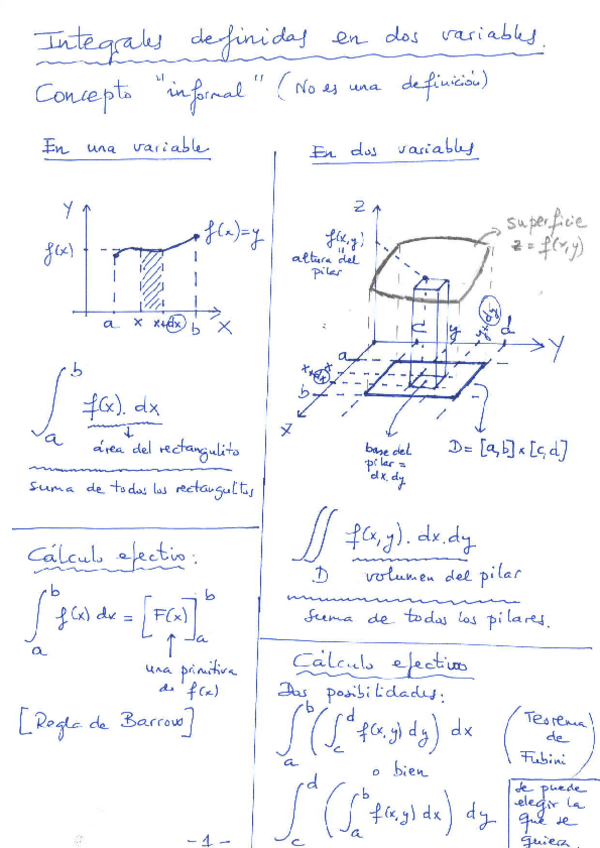 Integrales definidas en dos variables.
Concepto "informal" (No es una definición)
En una variable
Y
f(x)
f(x)=y
a x x+dx b X
∫_a^b f(x). dx
área del rectangulito
suma de todos los rectangulitos
Cálculo efectivo:
∫_a^b f(x) dx = [F(x)]_a^b
una primitiva
de f(x)
[Regla de Barrow]
En dos variables
Z
f(x,y)
"
altura del
pilar
superficie
z = f(x,y)
c y y+dy d
Y
a
x
x+dx
b
X
base del
pilar =
dx.dy
D= [a,b] x [c,d]
∬_D f(x,y). dx.dy
volumen del pilar
suma de todos los pilares.
Cálculo efectivo
Dos posibilidades:
∫_a^b (∫_c^d f(x,y) dy) dx
(Teorema
de
Fubini)
o bien
∫_c^d (∫_a^b f(x,y) dx) dy
se puede
elegir la
que se
quiera.
-1-